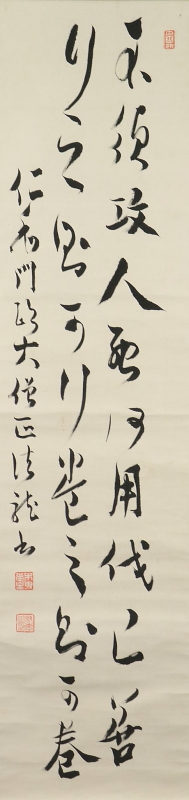 不須攻人惡何用伐己善
行之則可行卷之則可卷
仁和門跡大僧正法龍書